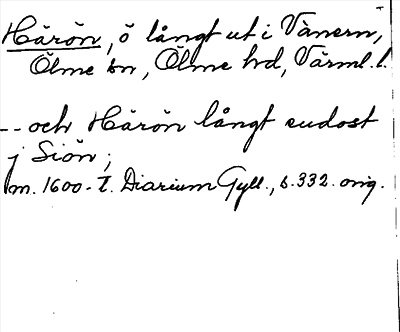 Härön, ö långt ut i Vänern,
Ölme sn, Ölme hd, Värml. l.
-- och Härön långt sudost
j Siön;
m. 1600-t. Diarium Gyll., s. 332. orig.